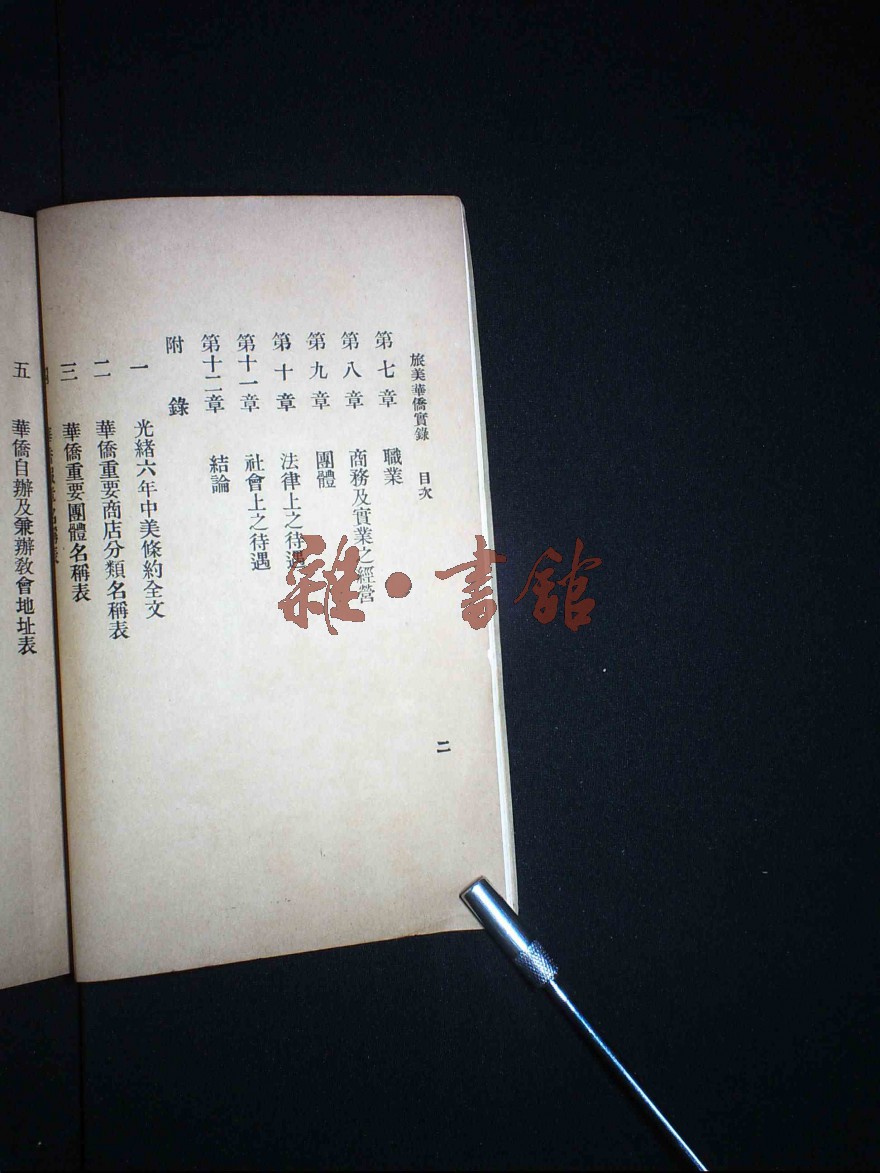 旅美華僑實錄 目次
二
第七章 職業
第八章 商務及實業之經營
第九章 團體
第十章 法律上之待遇
第十一章 社會上之待遇
第十二章 結論
附錄
一 光緒六年中美條約全文
二 華僑重要商店分類名稱表
三 華僑重要團體名稱表
五 華僑自辦及兼辦教會地址表
雜·書館